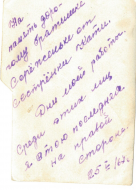 На
память доро-
гому братишке
Серёженьке от
сестрёнки Кати.
Дни моей работы.
Среди этих лиц
я стою последняя
на правой
стороне.
25/V/64.